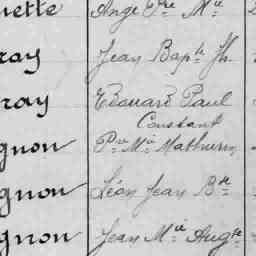 nette Ange Fre Mie
ray Jean Bapte Jh
ray Edouard Paul
Constant
gnon Pre Mie Mathurin
gnon Léon Jean Bte
gnon Jean Mie Augte